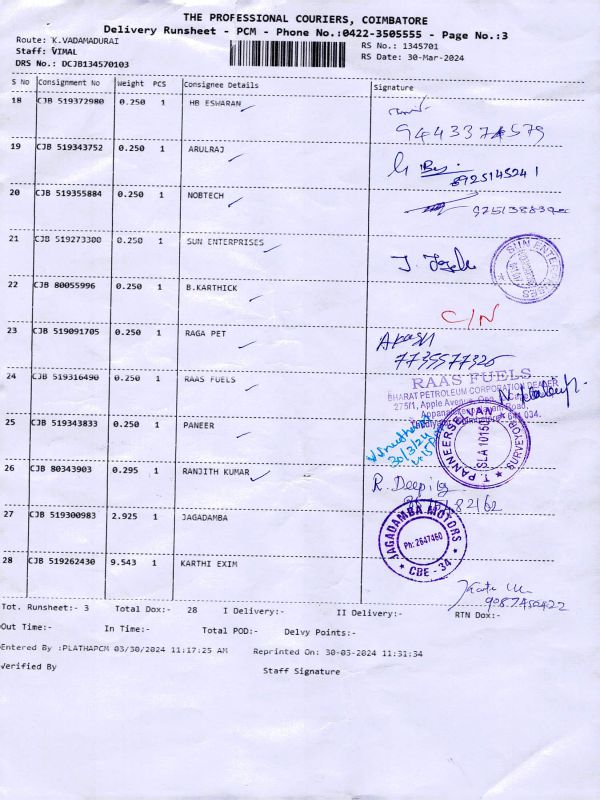 THE PROFESSIONAL COURIERS, COIMBATORE
Delivery Runsheet - PCM - Phone No.:0422-3505555 - Page No.:3
Route: K.VADAMADURAI
Staff: VIMAL
DRS No.: DCJB134570103
RS No.: 1345701
RS Date: 30-Mar-2024
S No Consignment No Weight PCS Consignee Details Signature
18 CJB 519372980 0.250 1 HB ESWARAN
9443374579
19 CJB 519343752 0.250 1 ARULRAJ
8925145241
20 CJB 519355884 0.250 1 NOBTECH
21 CJB 519273300 0.250 1 SUN ENTERPRISES
SUN ENTERPRISES
22 CJB 80055996 0.250 1 B.KARTHICK
C/N
23 CJB 519091705 0.250 1 RAGA PET
Akash
24 CJB 519316490 0.250 1 RAAS FUELS
RAAS FUELS
BHARAT PETROLEUM CORPORATION DEALER
275/1, Apple Avenue,
25 CJB 519343833 0.250 1 PANEER
30/3/24
T. PANNEERSELVAN SURVEYOR
26 CJB 80343903 0.295 1 RANJITH KUMAR
R. Deepika
27 CJB 519300983 2.925 1 JAGADAMBA
JAGADAMBA MOTORS
Ph: 2647460
CBE - 34
28 CJB 519262430 9.543 1 KARTHI EXIM
Tot. Runsheet:- 3 Total Dox:- 28 I Delivery:- II Delivery:- RTN Dox:-
Out Time:- In Time:- Total POD:- Delvy Points:-
Entered By :PLATHAPCM 03/30/2024 11:17:25 AM Reprinted On: 30-03-2024 11:31:34
Verified By Staff Signature